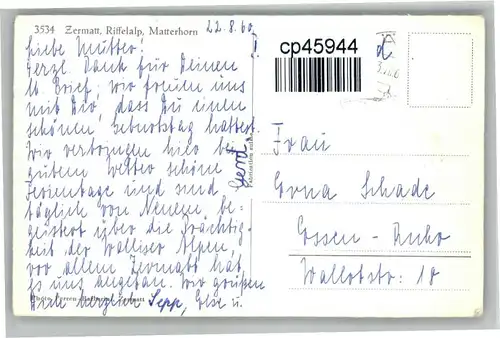 3534 Zermatt, Riffelalp, Matterhorn
22.8.60
Liebe Mutter!
Herzl. Dank für Deinen
lb. Brief; wir freuen uns
mit Dir, dass Du einen
schönen Geburtstag hattest.
Wir verbringen hier bei
gutem Wetter schöne
Ferientage und sind
täglich von Neuem be-
geistert über die Prächtig-
keit der Walliser Alpen,
vor allem Zermatt hat
es uns angetan. Wir grüßen
Dich herzlich Sepp, Else u.
Gerd
cp45944
Frau
Erna Schade
Essen-Ruhr
Wallotstr. 18